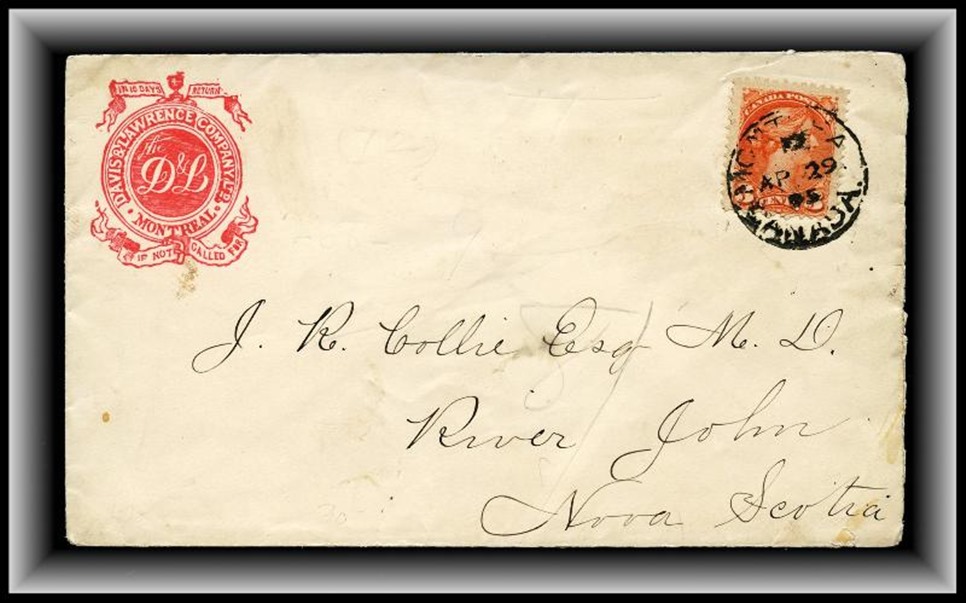 IN 10 DAYS RETURN
DAVIS & LAWRENCE COMPANY LTD
The
D&L
MONTREAL
IF NOT CALLED FOR
CANADA POSTAGE
AP 29
95
CANADA.
J. R. Collie Esq M. D.
River John
Nova Scotia